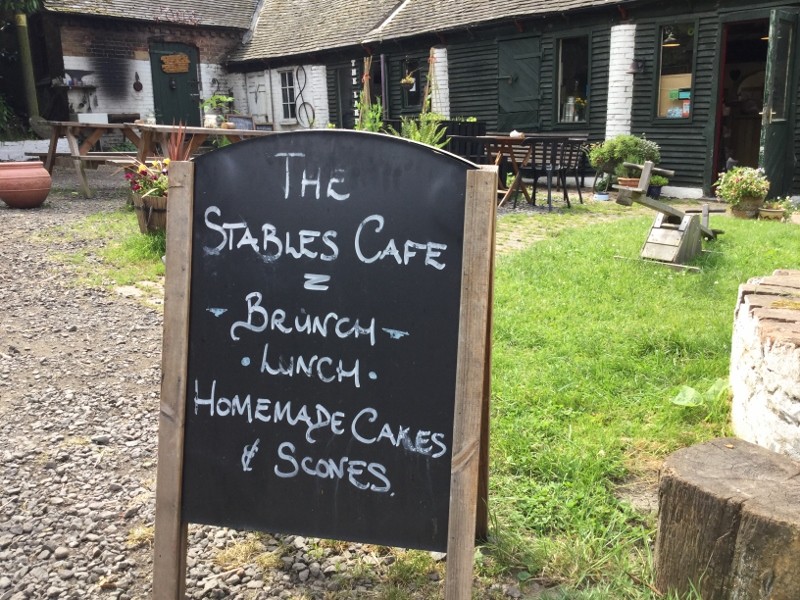 THE
STABLES CAFE
BRUNCH
LUNCH
HOMEMADE CAKES
& SCONES.